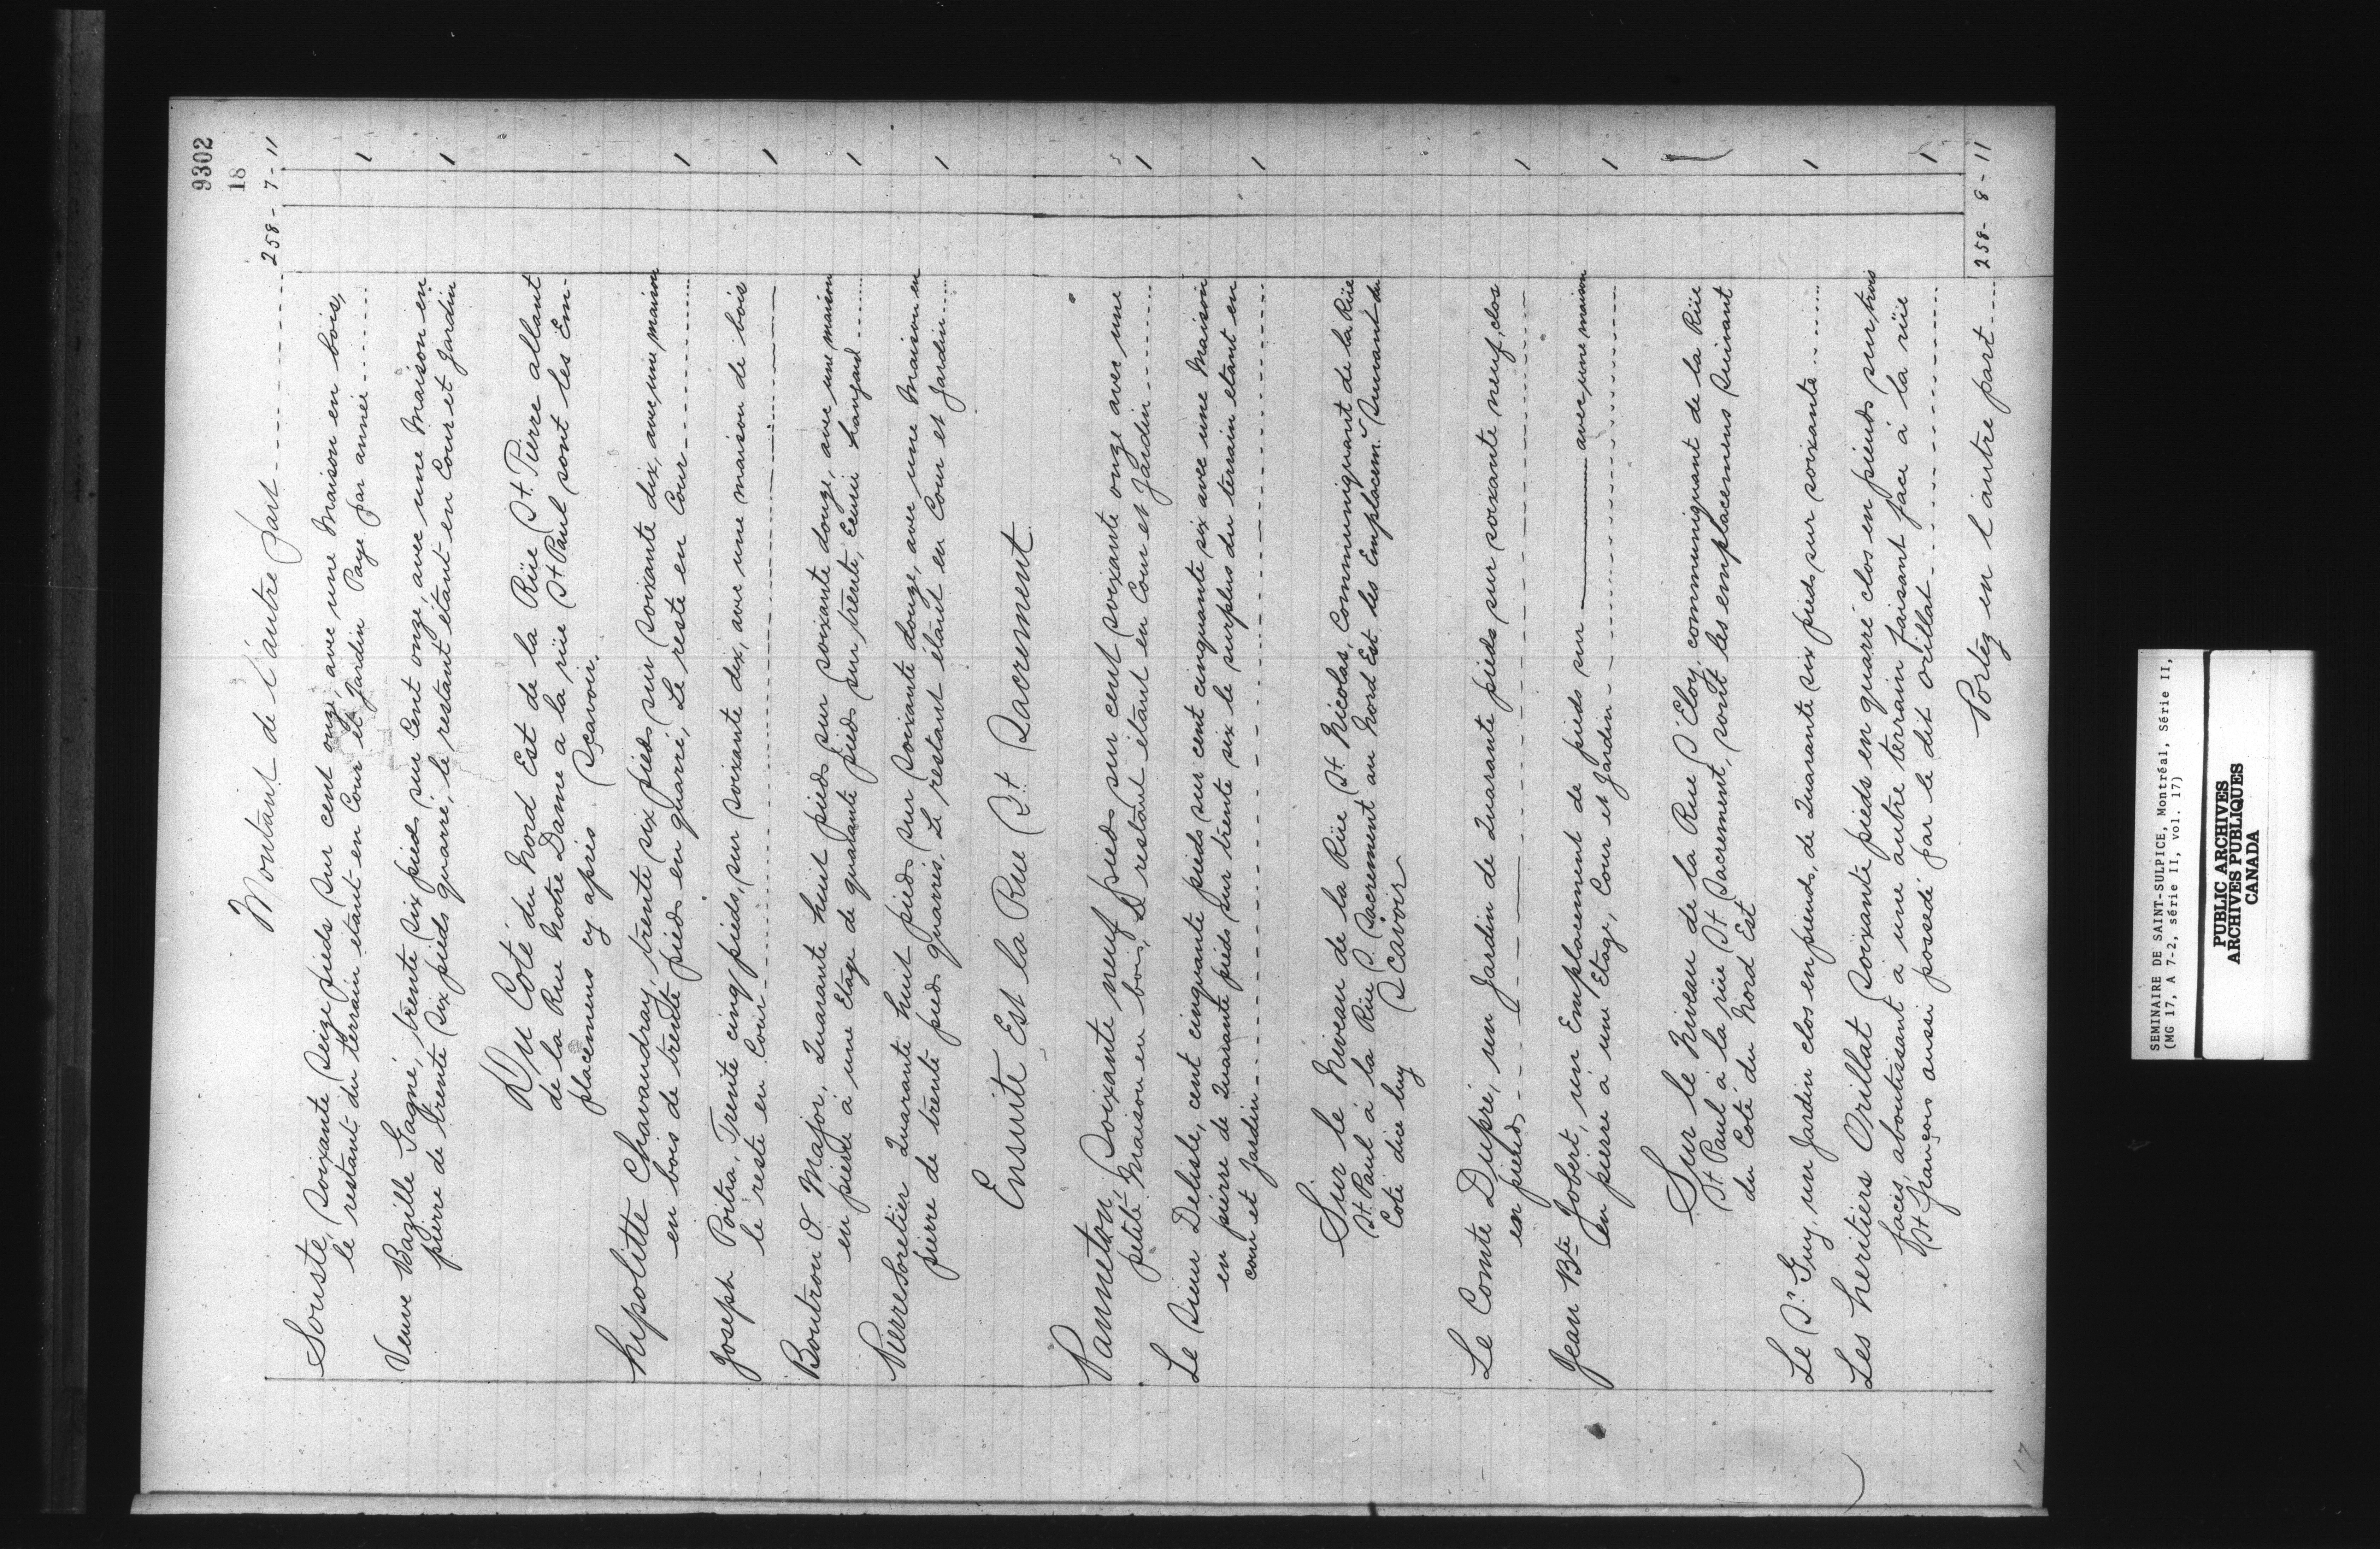 9302
18
Montant de l'autre part 258 - 7 - 11
Souste, Soixante Seize pieds Sur cent onze, avec une Maison en bois,
le restant du terrain etant en Cour et Jardin Paye par année 1
Veuve Bazille Gagné, trente Six pieds sur Cent onze, avec une Maison en
pierre de trente Six pieds quarré, le restant étant en Cour et Jardin 1
Du Coté du Nord Est de la Rüe St. Pierre allant
de la Rue Notre Dame a la rüe St Paul sont les Em-
placemens cy après Sçavoir.
hipolitte Chavaudray, trente six pieds sur Soixante dix, avec une maison
en bois de trente pieds en quarré, Le reste en Cour 1
Joseph Poitra, Trente cinq pieds, sur Soixante dix, avec une maison de bois
le reste en Cour 1
Boutron d. Major, Quarante huit pieds sur soixante douze, avec une maison
en pierre à une Etage de quarante pieds sur trente, Ecurie hangard 1
Pierre Soretier Quarante huit pieds sur Soixante douze, avec une Maison en
pierre de trente pieds quarrés, Le restant étant en Cour et Jardin 1
Ensuite Est la Rue St. Sacrement
Panneton, Soixante neuf pieds sur cent soixante onze avec une
petite Maison en bois, Le restant étant en Cour et Jardin 1
Le Sieur Delisle, cent cinquante pieds sur cent cinquante six avec une Maison
en pierre de Quarante pieds sur trente six le surplus du terrain etant en
cour et Jardin 1
Sur le Niveau de la Rüe St. Nicolas, Communiquant de la Rüe
St. Paul à la Rüe S. Sacrement au Nord Est les Emplacem. Suivant du
Coté dice luy Scavoir
Le Comte Dupré, un Jardin de Quarante pieds sur soixante neuf, clos
en pieuds 1
Jean Bte Jobert, un Emplacement de pieds sur avec une maison
en pierre à une Etage, Cour et Jardin 1
Sur le Niveau de la Rue S Eloy, communiquant de la Rüe
St. Paul à la rüe St. Sacrement, sont les emplacemens Suivant
du Coté du Nord Est
Le Sr. Guy, un Jardin clos en pieuds, de Quarante six pieds sur soixante 1
Les heritiers Orillat Soixante pieds en quarré clos en pieuds sur trois
faces, aboutissant à une autre terrain faisant face à la rüe
St François aussi possedé par le dit orillat 1
Portéz en l'autre part 258 - 8 - 11
17
SEMINAIRE DE SAINT-SULPICE, Montréal, Série II,
(MG 17, A 7-2, série II, vol. 17)
PUBLIC ARCHIVES
ARCHIVES PUBLIQUES
CANADA